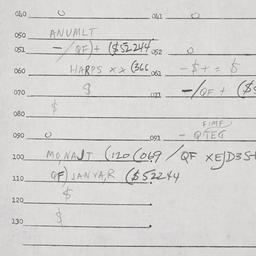 040 0 041 0
050 ANUMLT
051 -/QF)+ ($52244 052 0
060 HARPS xx (366 061 -$+= $
070 $ 071 -/QF + ($
080 $
FIMF)
090 0 091 - QTEG
100 MONAJT (120(069 / QF XEJD3S+
110 QF) JANVA,R ($52244
120 $
130 $